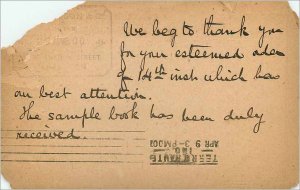 We beg to thank you
for your esteemed order
of 14th inst which has
our best attention.
The sample book has been duly
received.
TERRE HAUTE
IND
APR 9 3-PM